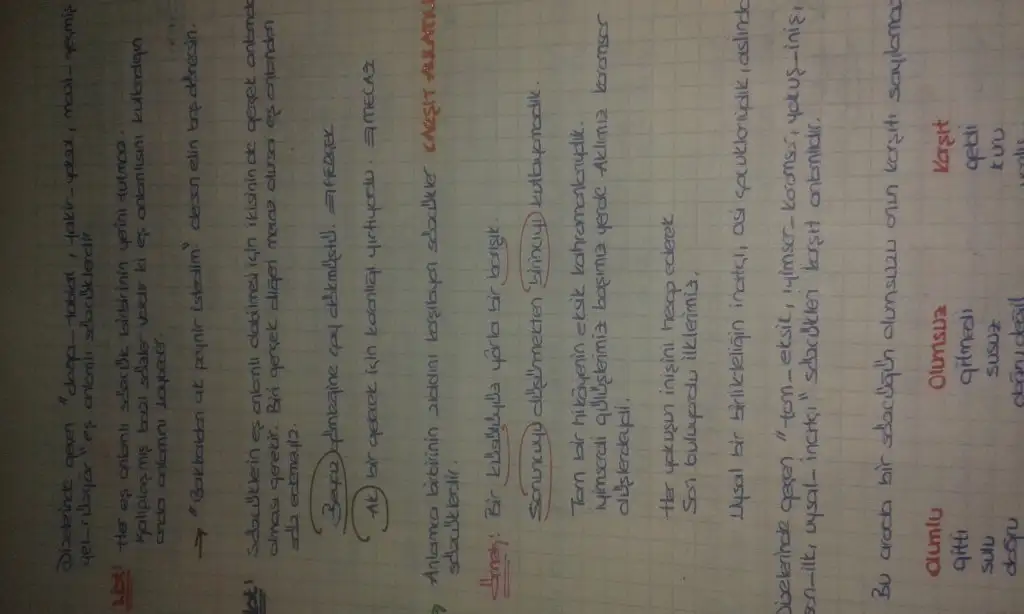 Dizelerinde geçen "doğa-tabiat, fakir-yoksul, mazi-geçmiş
yel-rüzgar" eş anlamlı sözcüklerdir
Not: Her eş anlamlı sözcük birbirinin yerini tutmaz.
Kalıplaşmış bazı sözler vardır ki eş anlamlısını kullandığın
anda anlamını kaybeder
→ "Bakkaldan ak peynir istedim" desen elin boş dönersin.
Not: Sözcüklerin eş anlamlı olabilmesi için ikisinin de gerçek anlamda
olması gerekir. Biri gerçek diğeri mecaz olursa eş anlamdan
söz edemeyiz.
Beyaz gömleğine çay dökmüştü. ⇒ GERÇEK
Ak bir gelecek için karanlığı yırtıyordu. ⇒ MECAZ
→ Anlamca birbirinin zıddını karşılayan sözcükler (KARŞIT ANLAMLI)
sözcüklerdir.
Örneğin: Bir küskülüyüz yarla bir barışık
Sonuncuyu düşünmekten birinciyi kutlayamadık.
Tam bir hikayenin eksik kahramanlarıydık.
İyimserdi gülüşlerimiz başımız yerde Aklımız karamsar
düşlerdeydi.
Her yokuşun inişini hesap ederek
Son buluyordu ilklerimiz.
Uysal bir birlikteliğin inatçı, asi çocuklarıydık, aslında
Dizelerinde geçen "tam-eksik, iyimser-karamsar, yokuş-iniş,
son-ilk, uysal-inatçı" sözcükleri karşıt anlamlıdır.
Bu arada bir sözcüğün olumsuzu onun karşıtı sayılamaz
Olumlu Olumsuz Karşıt
gitti gitmedi geldi
sulu susuz kuru
doğru doğru değil